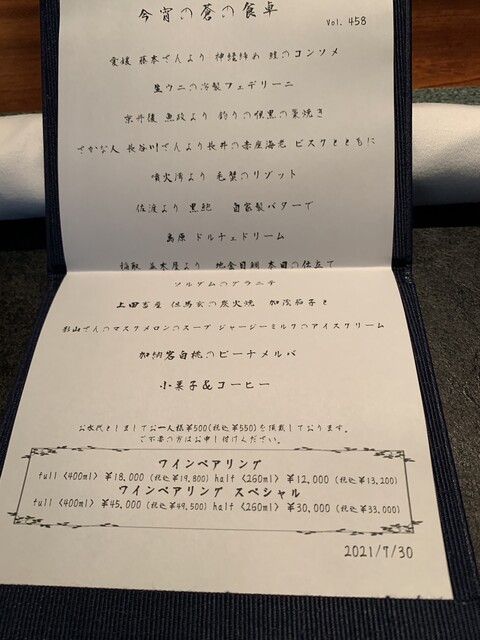 今宵の蒼の食卓
Vol. 458
愛媛 藤本さんより 神経締め 鮭のコンソメ
生ウニの冷製フェデリーニ
魚政より 釣りの 黒の藁焼き
さかな人 長谷川さんより 長井の赤座海老 ビスクとともに
噴火湾より 毛蟹のリゾット
佐渡より 黒鮑 自家製バターで
島原 ドルチェドリーム
より 地金目鯛 本日の仕立て
ソルダムのグラニテ
上田畜産 但馬玄の炭火焼 加茂茄子と
影山さんのマスクメロンのスープ ジャージーミルクのアイスクリーム
加納岩白桃のピーチメルバ
小菓子&コーヒー
お水代としましてお一人様¥500(税込¥550)を頂戴しております。
ご不要の方はお申し付けください。
ワインペアリング
full 〈400ml〉 ¥18,000 (税込 ¥19,800) half 〈260ml〉 ¥12,000 (税込 ¥13,200)
ワインペアリング スペシャル
full 〈400ml〉 ¥45,000 (税込 ¥49,500) half 〈260ml〉 ¥30,000 (税込 ¥33,000)
2021/7/30